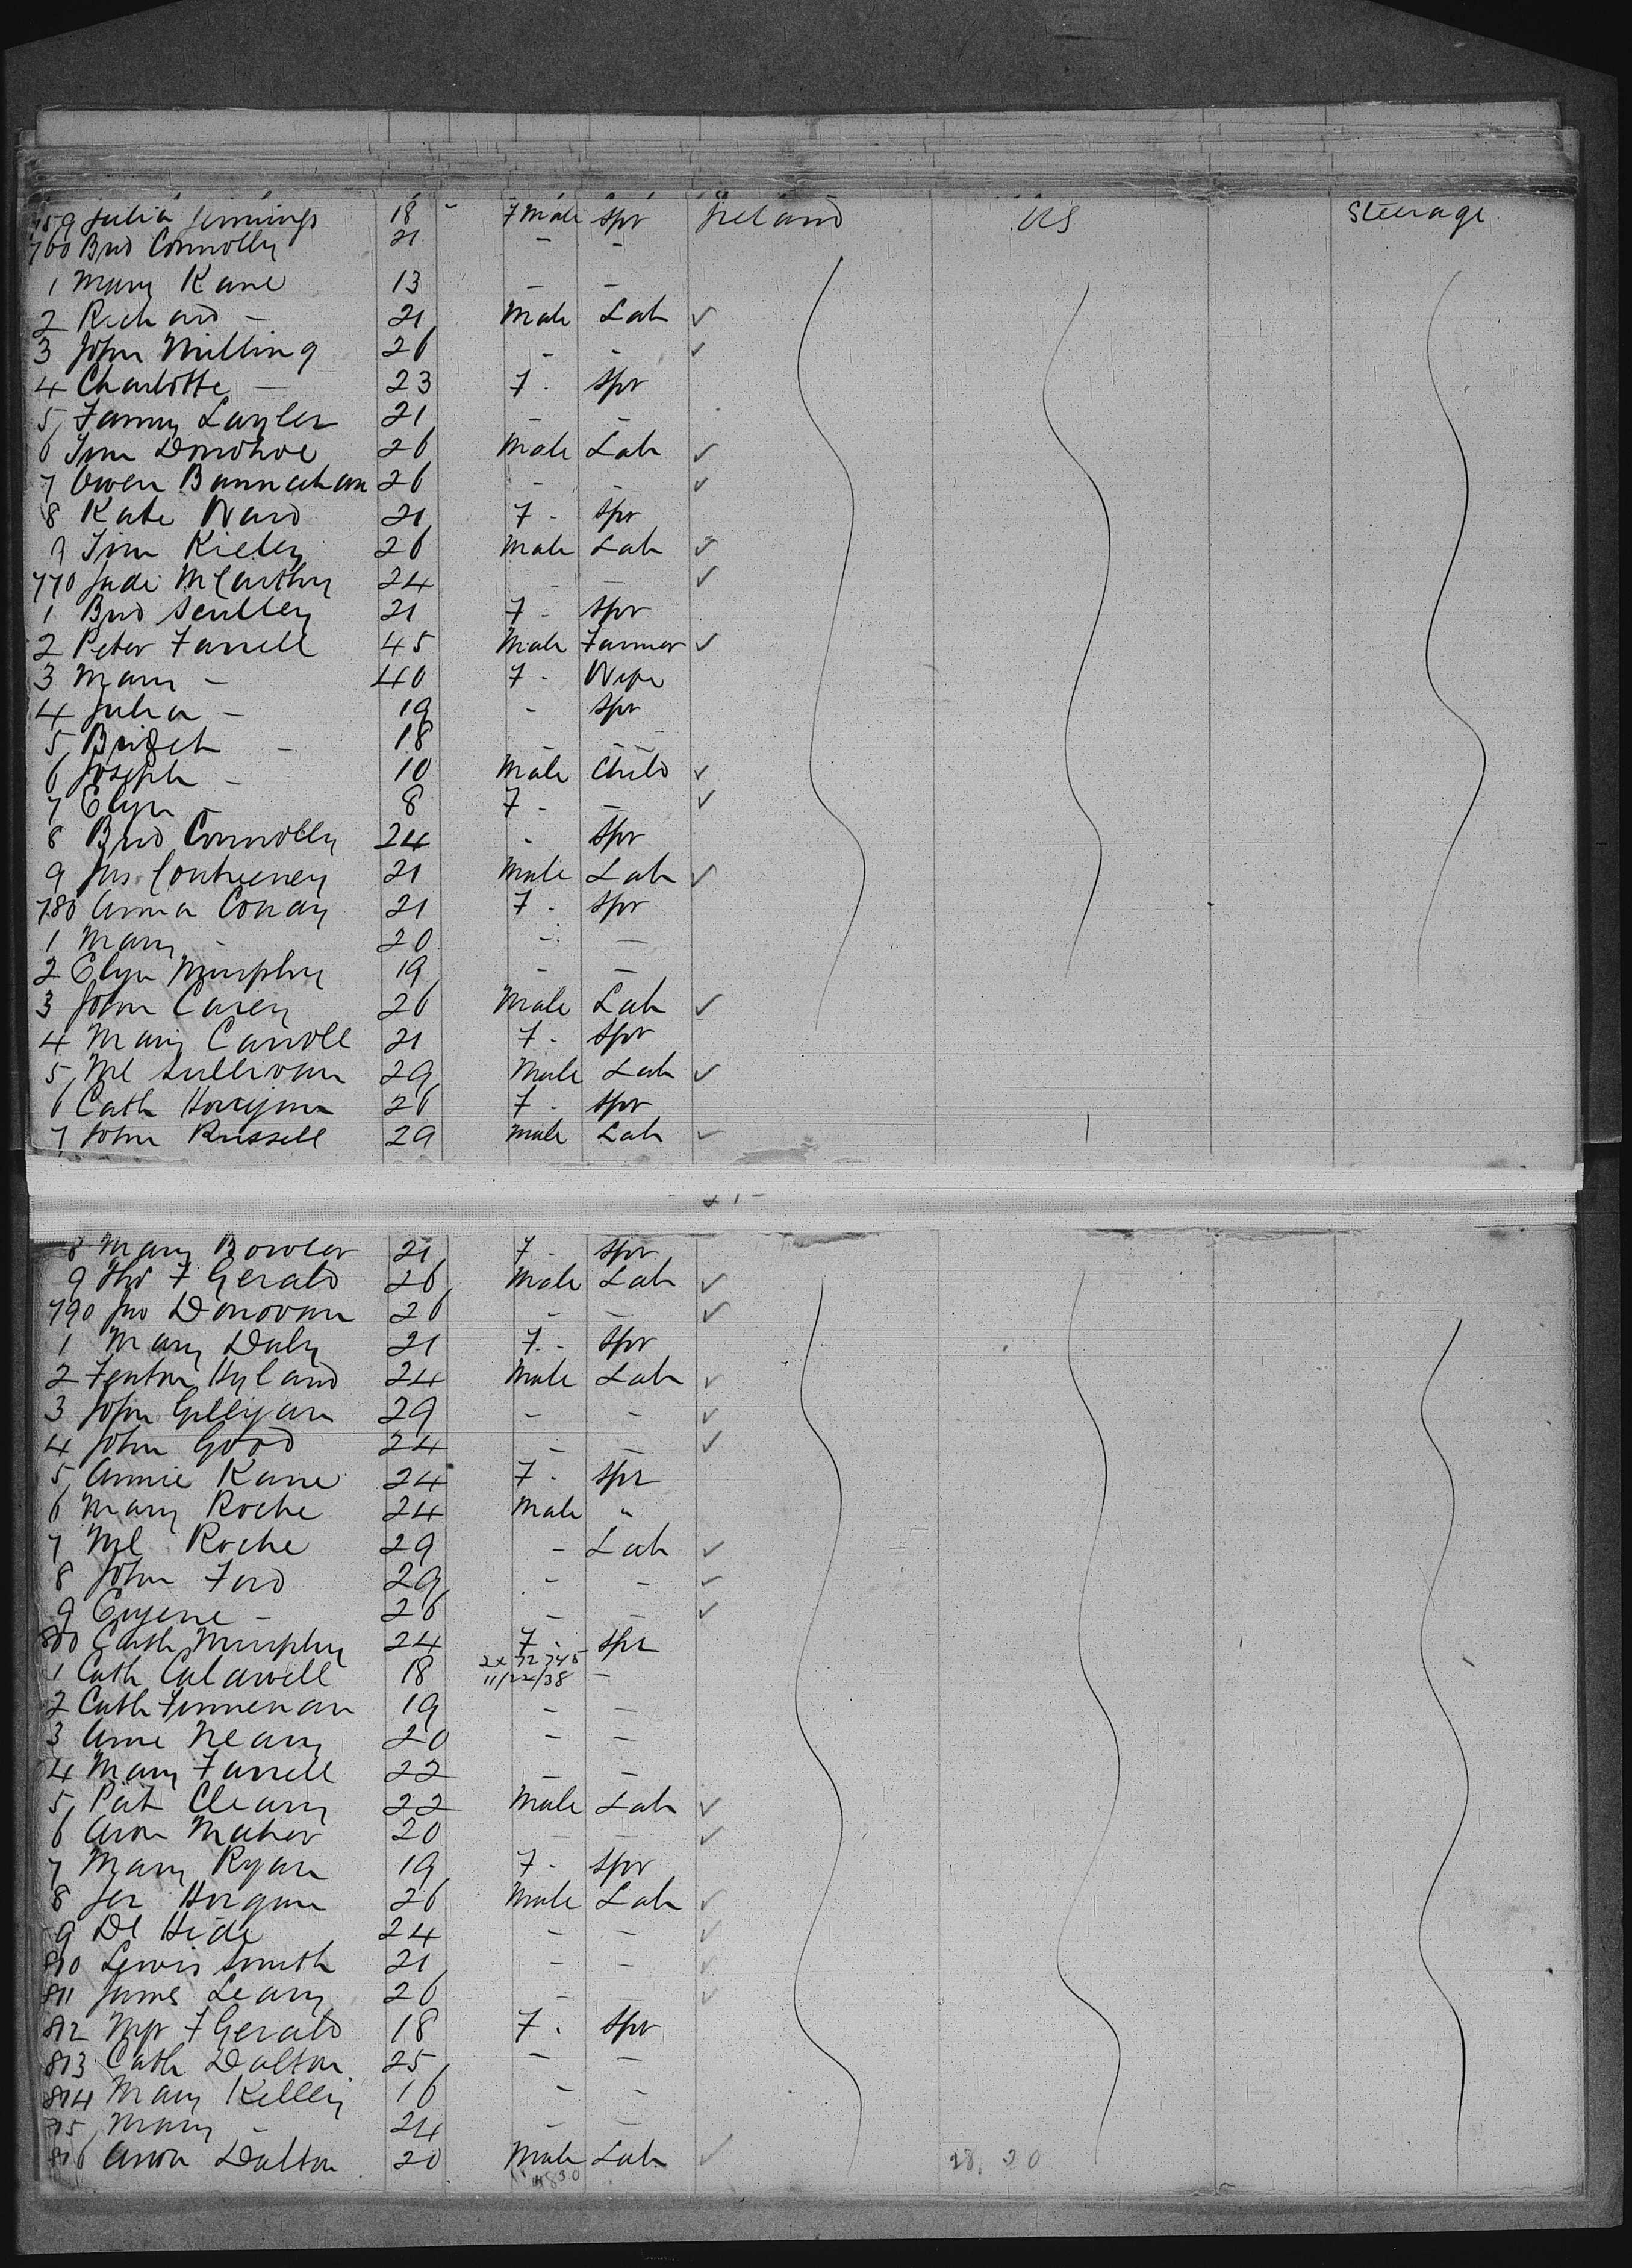 759 Julia Jennings 18 - Fmale Spr Ireland US Steerage
760 Brid Connolly 21 - -
1 Mary Kane 13 - -
2 Richard - 21 Male Lab ✓
3 John Milling 26 - - ✓
4 Charlotte - 23 F - Spr
5 Fanny Lawler 21 - -
6 Tim Donohoe 26 Male Lab ✓
7 Owen Bannahan 26 - - ✓
8 Kate Ward 21 F - Spr
9 Tim Kieley 26 Male Lab ✓
770 Jade McCarthy 24 - - ✓
1 Brid Sculley 21 F - Spr
2 Peter Farrell 45 Male Farmer ✓
3 Mary - 40 F - Wife
4 Julia - 19 - Spr
5 Bridget - 18 - -
6 Joseph - 10 Male Child ✓
7 Elyn - 8 F - - ✓
8 Brid Connolly 24 - Spr
9 Jas Couhreeney 21 Male Lab ✓
780 Anna Conay 21 F - Spr
1 Mary - 20 - -
2 Elyn Murphy 19 - -
3 John Carey 26 Male Lab ✓
4 Mary Carroll 21 F - Spr
5 Ml Sullivan 29 Male Lab ✓
6 Cath Horrigan 26 F - Spr
7 John Russell 29 Male Lab ✓
8 Mary Bowler 21 F - Spr
9 Tho F Gerald 26 Male Lab ✓
790 Jno Donovan 26 - - ✓
1 Mary Daly 21 F - Spr
2 Fenton Hyland 24 Male Lab ✓
3 John Gilligan 29 - - ✓
4 John Good 24 - - ✓
5 Annie Kane 24 F - Spr
6 Mary Roche 24 Male "
7 Ml Roche 29 - Lab ✓
8 John Ford 29 - - ✓
9 Eugene - 26 - - ✓
800 Cath Murphy 24 F - Spr
1 Cath Calawell 18 2x 32 745 11/22/38 -
2 Cath Finnenan 19 - -
3 Anne Neary 20 - -
4 Mary Farrell 22 - -
5 Pat Cleary 22 Male Lab ✓
6 Aron Maher 20 - - ✓
7 Mary Ryan 19 F - Spr
8 Jer Horgan 26 Male Lab ✓
9 Dl Hide 24 - - ✓
810 Lewis Smith 21 - - ✓
811 James Leary 26 - - ✓
812 Mgr F Gerald 18 F - Spr
813 Cath Dalton 25 - -
814 Mary Kelley 16 - -
815 Mary - 24 - -
816 Aron Dalton 20 Male Lab ✓